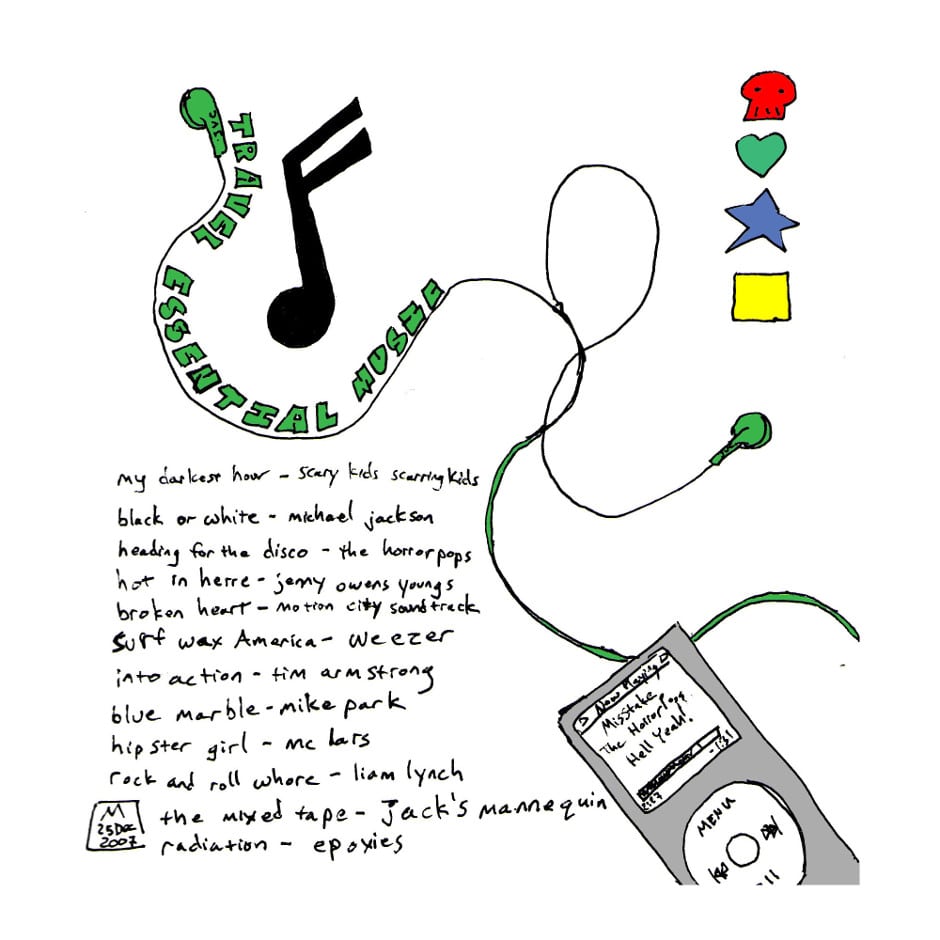 TRAVEL ESSENTIAL MUSIC
my darkest hour - scary kids scarring kids
black or white - michael jackson
heading for the disco - the horrorpops
hot in herre - jenny owens youngs
broken heart - motion city soundtrack
surf wax America - weezer
into action - tim armstrong
blue marble - mike park
hipster girl - mc lars
rock and roll whore - liam lynch
the mixed tape - jack's mannequin
radiation - epoxies
M
25 Dec
2007
Now Playing
Misstake
The HorrorPops
Hell Yeah!
2:27 -1:31
MENU